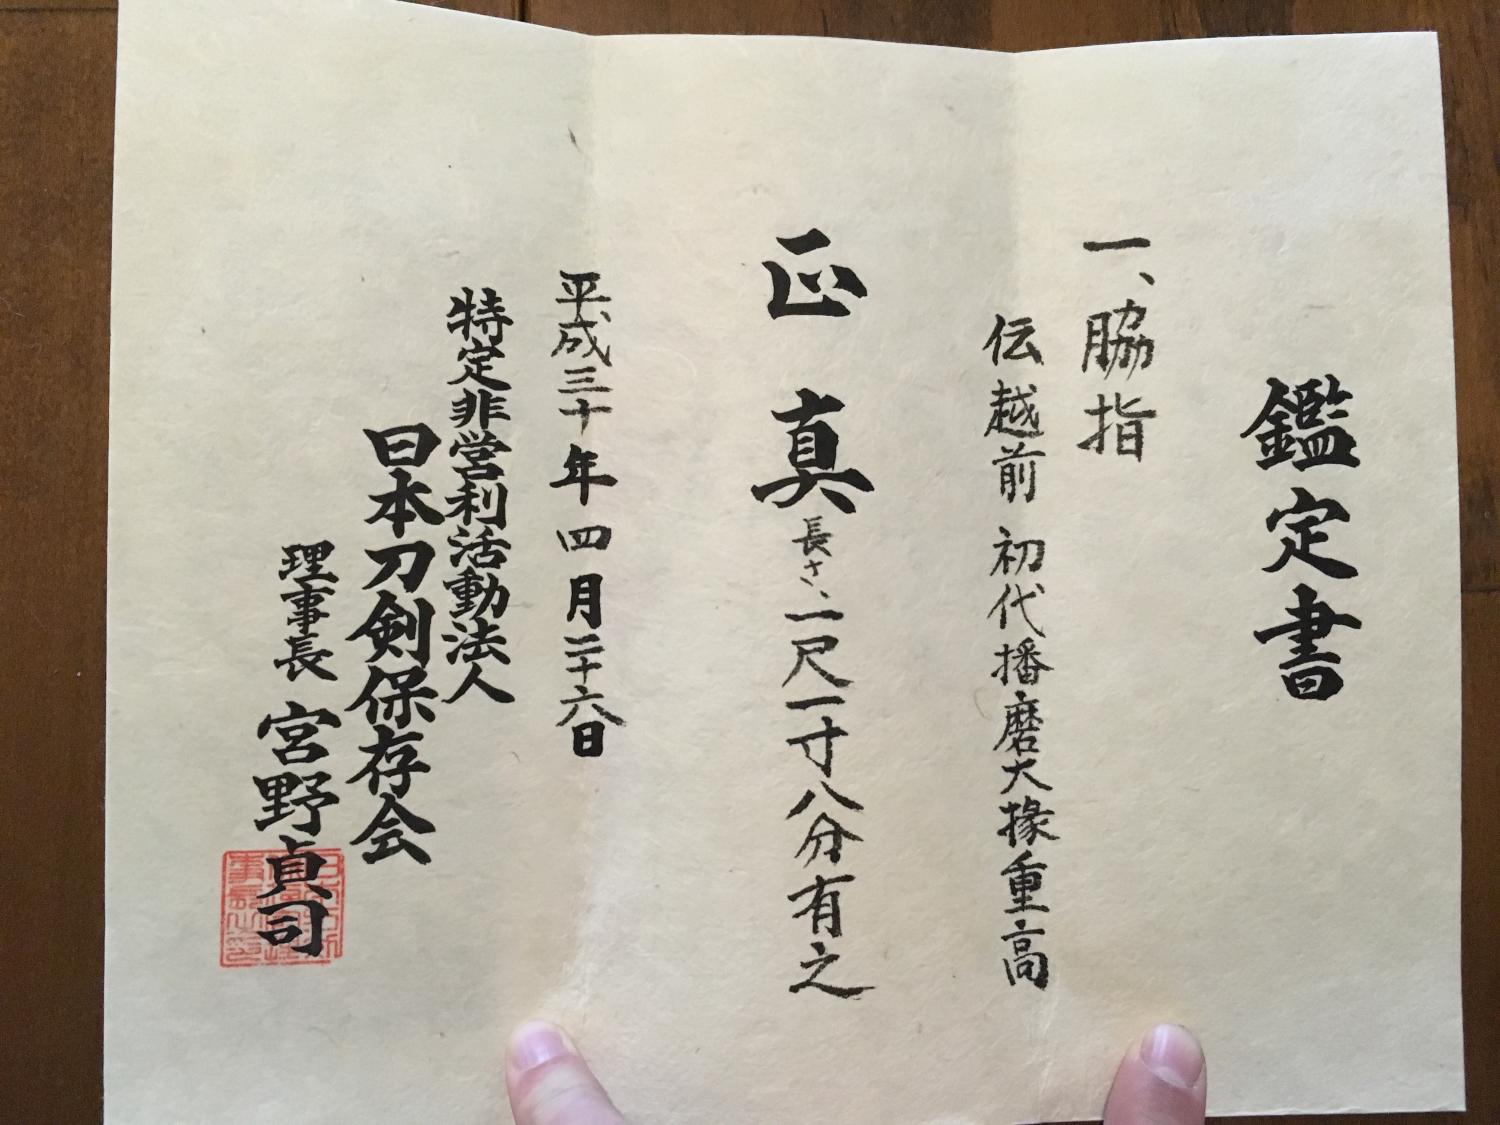 鑑定書
一、脇指
伝越前 初代播磨大掾重高
正真 長さ、一尺一寸八分有之
平成三十年四月二十六日
特定非営利活動法人
日本刀剣保存会
理事長 宮野貞司